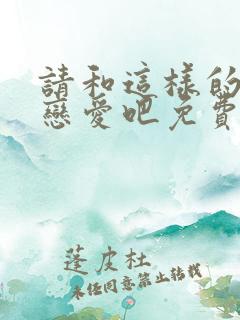 請和這樣的
戀愛吧免費
蓬皮杜
未經同意禁止轉載